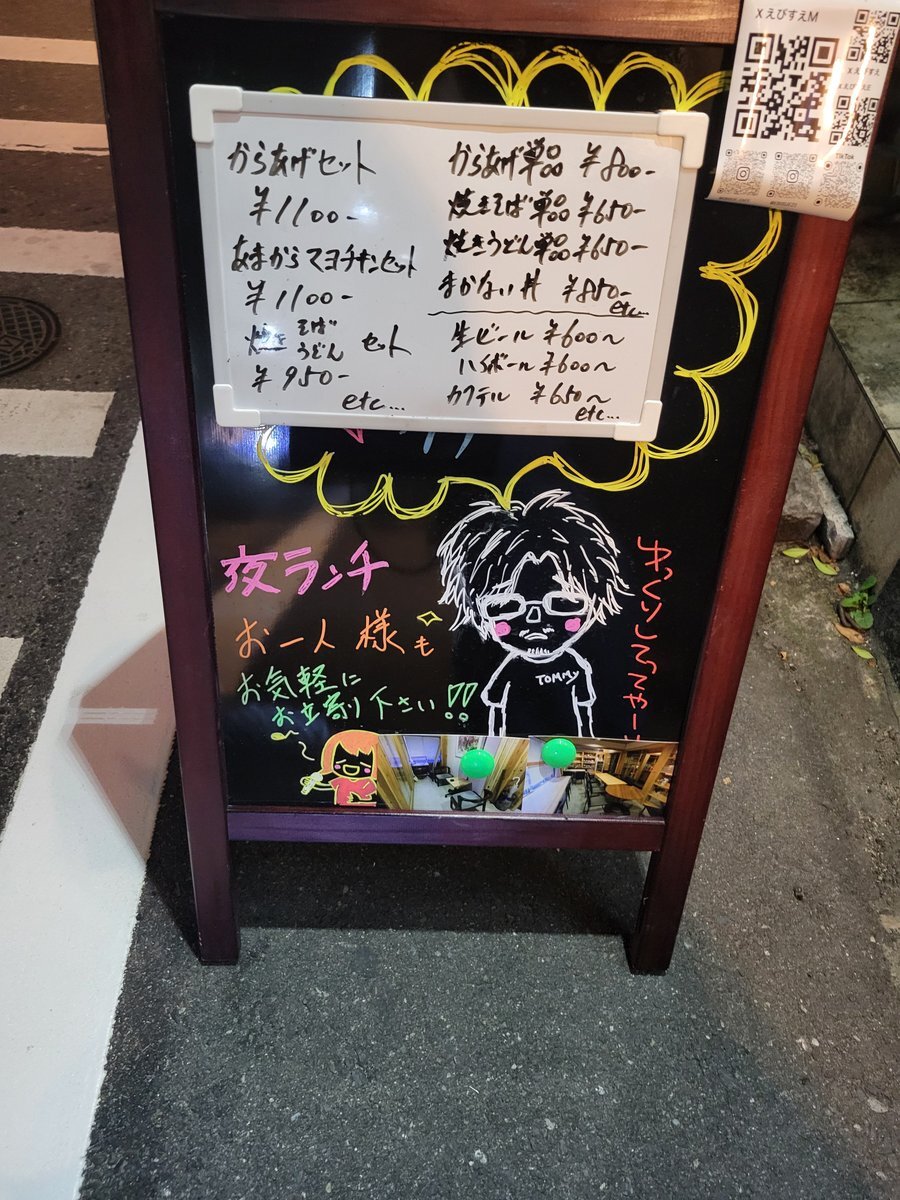 からあげセット
¥1100-
あまからマヨチキンセット
¥1100-
焼き そば うどん セット
¥950-
etc...
からあげ単品 ¥800-
焼きそば単品 ¥650-
焼きうどん単品 ¥650-
まかない丼 ¥850-
etc...
生ビール ¥600〜
ハイボール ¥600〜
カクテル ¥650〜
etc...
X えびすえM
X えびすえ
TikTok
夜ランチ
お一人様も
お気軽に
お立寄り下さい!!
TOMMY
ゆっくりしてってやー